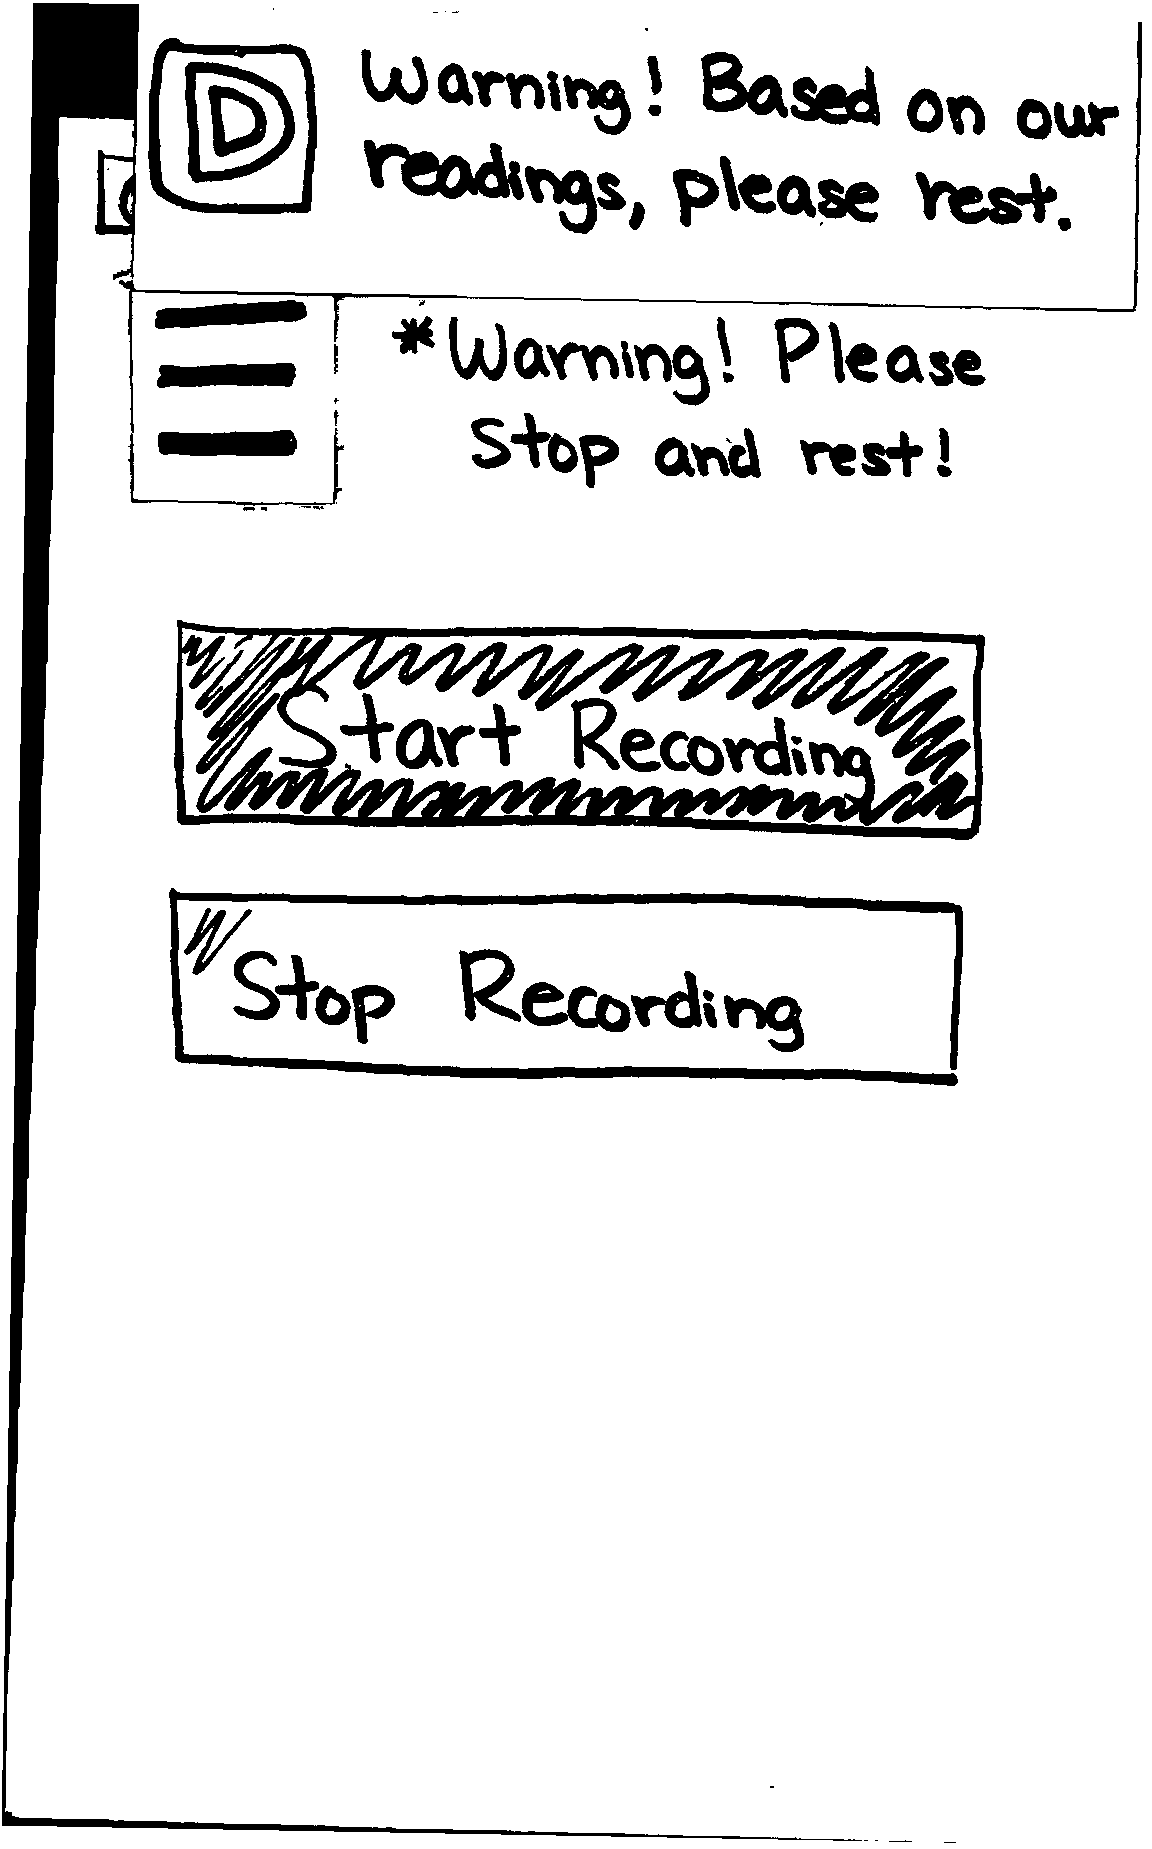 D
Warning! Based on our
readings, please rest.
*Warning! Please
Stop and rest!
Start Recording
Stop Recording